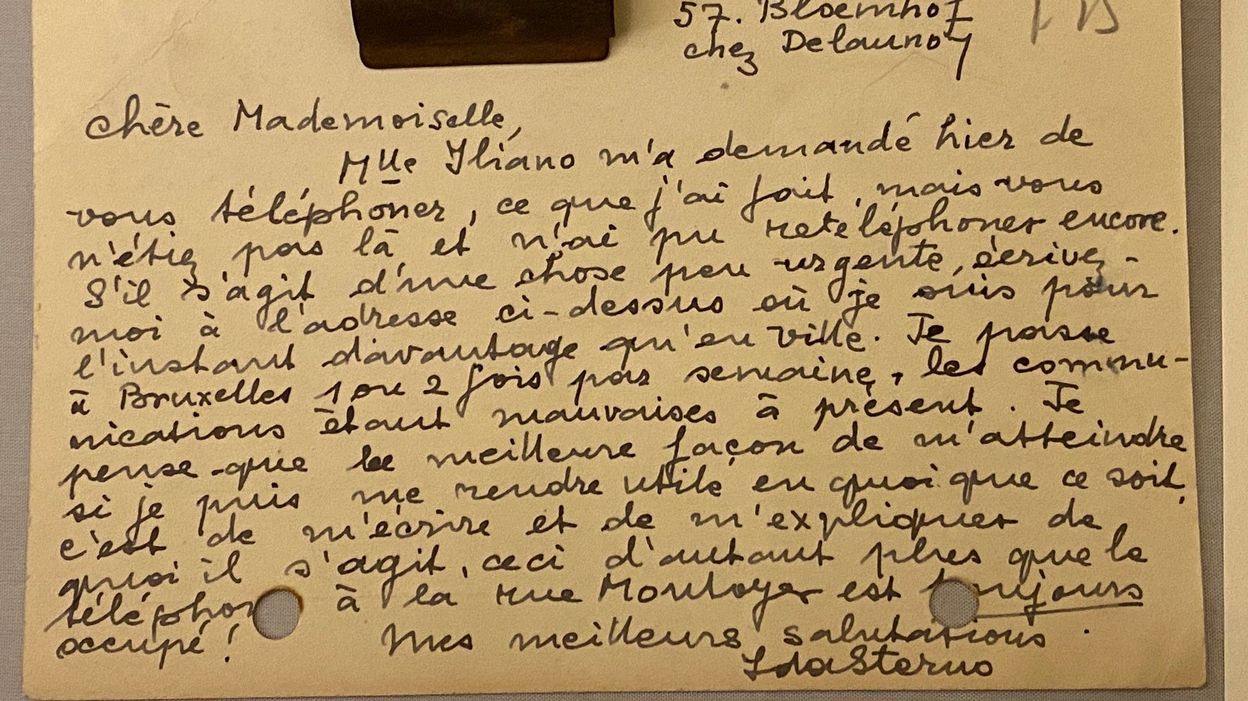 57. Bloemhof
chez Delaunoy
chère Mademoiselle,
Mlle Iliano m'a demandé hier de
vous téléphoner, ce que j'ai fait, mais vous
n'étiez pas là et n'ai pu retéléphoner encore.
S'il s'agit d'une chose peu urgente, écrivez-
moi à l'adresse ci-dessus où je suis pour
l'instant davantage qu'en ville. Je passe
à Bruxelles 1 ou 2 fois par semaine, les commu-
nications étant mauvaises à présent. Je
pense que la meilleure façon de m'atteindre
si je puis me rendre utile en quoi que ce soit,
c'est de m'écrire et de m'expliquer de
quoi il s'agit, ceci d'autant plus que le
téléphon à la rue Montoyer est toujours
occupé !
Mes meilleurs salutations.
Ida Sterno